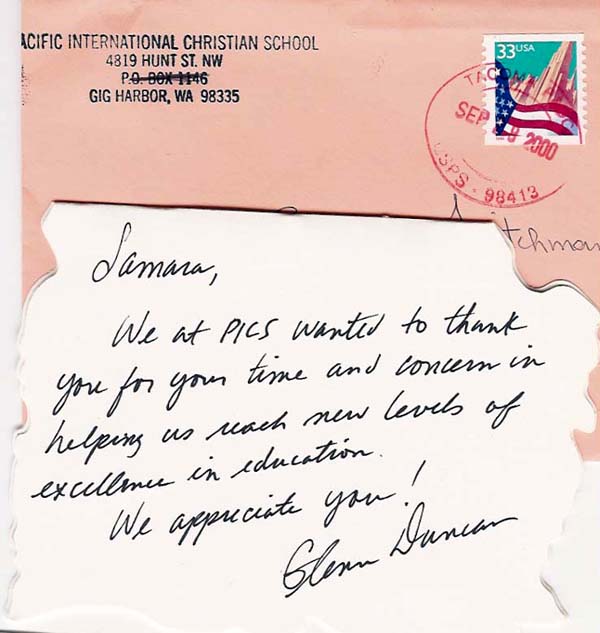 ACIFIC INTERNATIONAL CHRISTIAN SCHOOL
4819 HUNT ST. NW
P.O. BOX 1146
GIG HARBOR, WA 98335
33 USA
TACOMA
SEP 2000
USPS - 98413
tchman
Samara,
We at PICS wanted to thank
you for your time and concern in
helping us reach new levels of
excellence in education.
We appreciate you!
Glenn Duncan